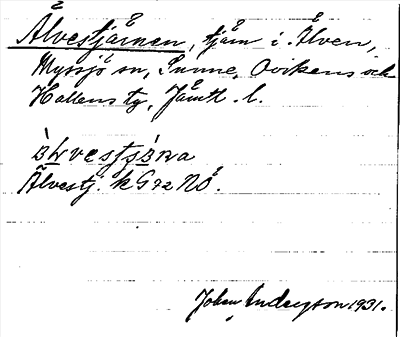 Ålvestjärnen, tjärn i Ålven,
Myssjö sn, Sunne, Ovikens och
Hallens tg, Jämtl. l.
Älvestj. k G 92 NÖ.
Johan Anderzson 1931.